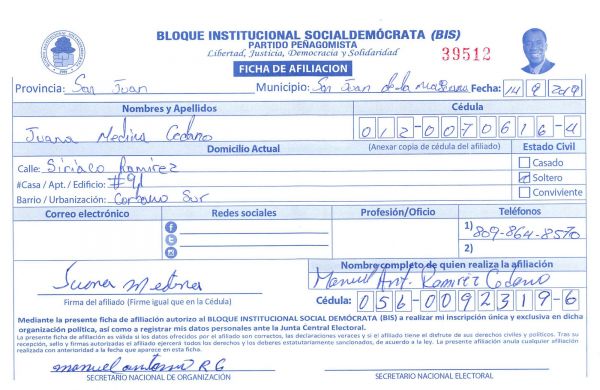 BLOQUE INSTITUCIONAL SOCIALDEMÓCRATA (BIS)
PARTIDO PEÑAGOMISTA
Libertad, Justicia, Democracia y Solidaridad
39512
FICHA DE AFILIACION
Provincia: San Juan Municipio: San Juan de la Maguana Fecha: 14 9 2019
Nombres y Apellidos Cédula
Juana Medina Cedano 012-0070616-4
Domicilio Actual (Anexar copia de cédula del afiliado) Estado Civil
Calle: Siriaco Ramirez Casado
#Casa / Apt. / Edificio: #91 Soltero
Barrio / Urbanización: Corbano Sur Conviviente
Correo electrónico Redes sociales Profesión/Oficio Teléfonos
1) 809-864-8570
2)
Juana Medina
Firma del afiliado (Firme igual que en la Cédula)
Nombre completo de quien realiza la afiliación
Manuel Ant. Ramirez Cedano
Cédula: 056-0092319-6
Mediante la presente ficha de afiliación autorizo al BLOQUE INSTITUCIONAL SOCIAL DEMÓCRATA (BIS) a realizar mi inscripción única y exclusiva en dicha
organización política, así como a registrar mis datos personales ante la Junta Central Electoral.
La presente ficha de afiliación es válida si los datos ofrecidos por el afiliado son correctos, las declaraciones veraces y si el afiliado tiene el disfrute de sus derechos civiles y políticos. Tras su
recepción, sello y firmas autorizadas el afiliado ejercerá todos los derechos y los deberes estatutariamente sancionados, de acuerdo a la ley. La presente afiliación anula cualquiera realizada
con anterioridad a la fecha que aparece en esta ficha.
manuel antonio R.C
SECRETARIO NACIONAL DE ORGANIZACIÓN SECRETARIO NACIONAL ELECTORAL